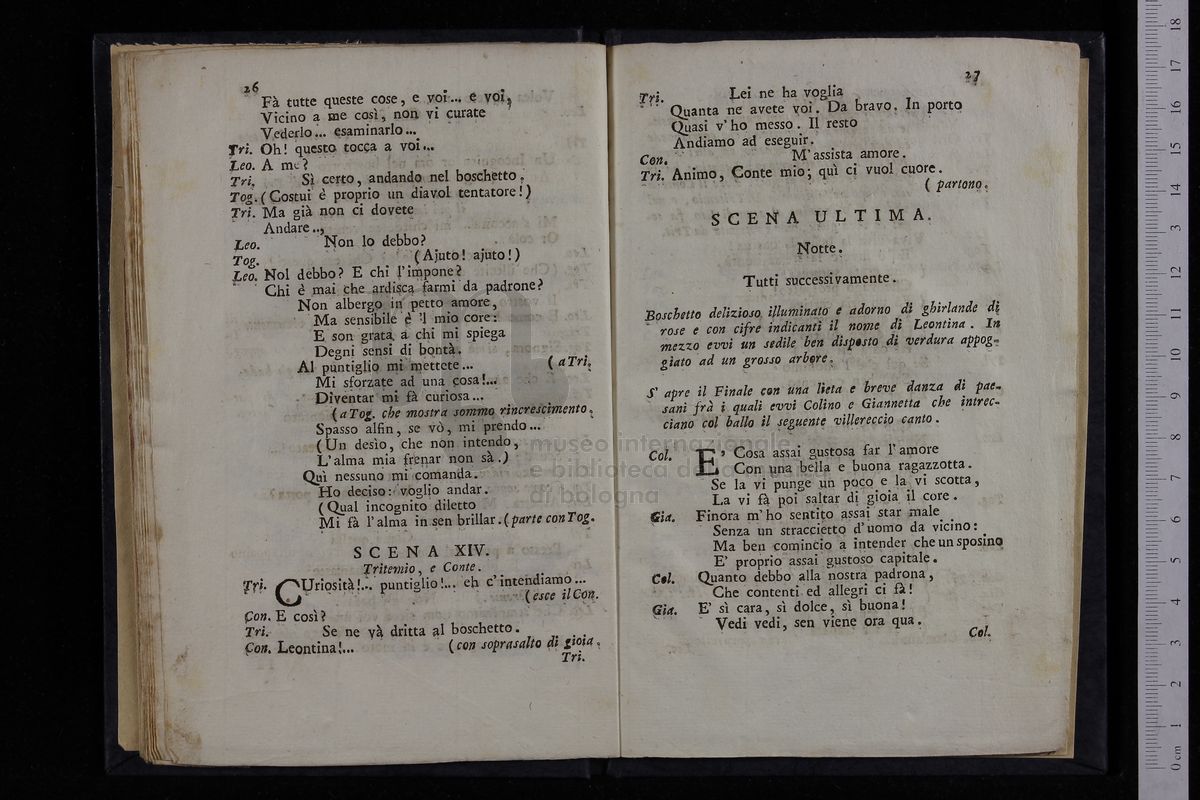 26
Fà tutte queste cose, e voi... e voi,
Vicino a me così, non vi curate
Vederlo... esaminarlo...
Tri. Oh! questo tocca a voi...
Leo. A me?
Tri. Sì certo, andando nel boschetto.
Tog. (Costui è proprio un diavol tentatore!)
Tri. Ma già non ci dovete
Andare..,
Leo. Non lo debbo?
Tog. (Ajuto! ajuto!)
Leo. Nol debbo? E chi l'impone?
Chi è mai che ardisca farmi da padrone?
Non albergo in petto amore,
Ma sensibile è 'l mio core:
E son grata a chi mi spiega
Degni sensi di bontà.
Al puntiglio mi mettete... (a Tri.
Mi sforzate ad una cosa!...
Diventar mi fà curiosa...
(a Tog. che mostra sommo rincrescimento.
Spasso alfin, se vò, mi prendo...
(Un desìo, che non intendo,
L'alma mia frenar non sà.)
Quì nessuno mi comanda.
Ho deciso: voglio andar.
(Qual incognito diletto
Mi fà l'alma in sen brillar. (parte con Tog.
SCENA XIV.
Tritemio, e Conte.
Tri. CUriosità!... puntiglio!... eh c'intendiamo...
(esce il Con.
Con. E così?
Tri. Se ne và dritta al boschetto.
Con. Leontina!... (con soprasalto di gioia.
Tri.
27
Tri. Lei ne ha voglia
Quanta ne avete voi. Da bravo. In porto
Quasi v'ho messo. Il resto
Andiamo ad eseguir.
Con. M'assista amore.
Tri. Animo, Conte mio; quì ci vuol cuore.
(partono.
SCENA ULTIMA.
Notte.
Tutti successivamente.
Boschetto delizioso illuminato e adorno di ghirlande di
rose e con cifre indicanti il nome di Leontina. In
mezzo evvi un sedile ben disposto di verdura appog-
giato ad un grosso arbore.
S' apre il Finale con una lieta e breve danza di pae-
sani frà i quali evvi Colino e Giannetta che intrec-
ciano col ballo il seguente villereccio canto.
Col. E' Cosa assai gustosa far l'amore
Con una bella e buona ragazzotta.
Se la vi punge un poco e la vi scotta,
La vi fà poi saltar di gioia il core.
Gia. Finora m'ho sentito assai star male
Senza un straccietto d'uomo da vicino:
Ma ben comincio a intender che un sposino
E' proprio assai gustoso capitale.
Col. Quanto debbo alla nostra padrona,
Che contenti ed allegri ci fà!
Gia. E' sì cara, sì dolce, sì buona!
Vedi vedi, sen viene ora qua.
Col.
museo internazionale
e biblioteca della musica
di bologna
0 cm 1 2 3 4 5 6 7 8 9 10 11 12 13 14 15 16 17 18